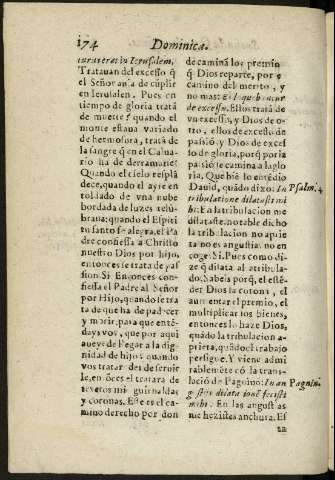 174 Dominica.
turus erat in Ierusalem.
Tratauan del excesso q̃
el Señor auia de cũplir
en Ierusalen. Pues en
tiempo de gloria tratã
de muerte? quando el
monte estaua variado
de hermosura, tratã de
la sangre q̃ en el Calua-
rio ha de derramarse?
Quando el cielo respla-
dece, quando el ayre en
toldado de vna nube
bordada de luzes relũ-
brana: quando el Espiri
tu santo se alegra, el Pa
dre confiessa a Christo
nuestro Dios por hijo,
entonces se trata de pas
sion. Si Entonces con-
fiessa el Padre al Señor
por Hijo, quando se tra
ta de que ha de padecer
y morir, para que enté-
days vos, que por aqui
aueys de llegar a la dig
nidad de hijos quando
vos tratar des de seruir
le, entõces el tratara de
teneros mil guirnaldas
y coronas. Este es el ca-
mino derecho por don
de caminã los premio
q̃ Dios reparte, por e
camino del merito, y
no mas:
de excessu. Ellos tratã de
vn excesso, y Dios de o-
tro, ellos de excesso de
passió: y Dios de excef
so de gloria, porq̃ por la
passió se camina a la glo
ria. Que bié lo entédio
Dauid, quãdo dixo: In
Psalm. 4
tribulatione dilatasti mi
hi. En la tribulacion me
dilataste: notable dicho
la tribulacion no aprie
ta no es angustia: no en
coge: Si. Pues como di-
ze q̃ dilata al atribula-
do. Sabeis porq̃, el esté-
der Dios la corona, el
aumentar el premio, el
multiplicar los bienes,
entonces lo haze Dios,
quãdo la tribulacion a-
prieta, quãdo el trabajo
persigue. Y viene admi
rablemēte cõ la trans-
lació de Pagnino: In an
Pagnin.
mihi. En las angust as
me hezistes anchura. Es
ta